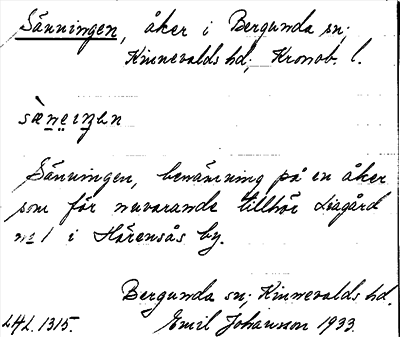 Sänningen, åker i Bergunda sn;
Kinnevalds hd; Kronob. l.
Sänningen, benämning på en åker
som för nuvarande tillhör Liagård
№ 1 i Härensås by.
Bergunda sn; Kinnevalds hd.
LHL. 1315. Emil Johansson 1933.